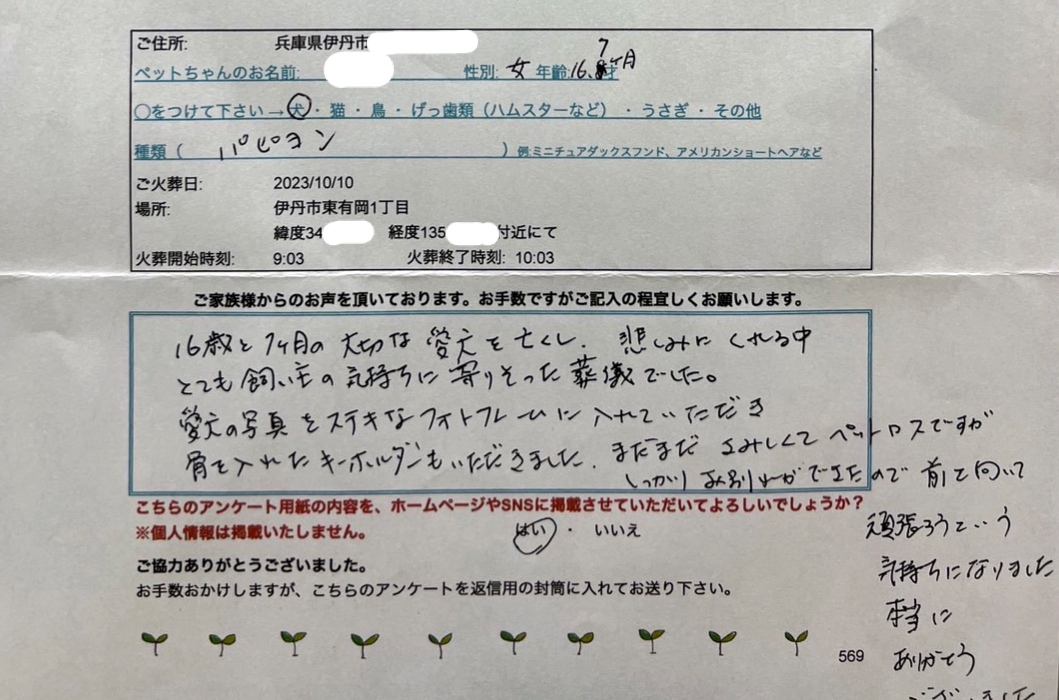 ご住所: 兵庫県伊丹市
ペットちゃんのお名前: 性別: 女 年齢:16.7ヶ月
〇をつけて下さい→犬・猫・鳥・げっ歯類（ハムスターなど）・うさぎ・その他
種類（ パピヨン ）例:ミニチュアダックスフンド、アメリカンショートヘアなど
ご火葬日: 2023/10/10
場所: 伊丹市東有岡1丁目
緯度34 経度135 付近にて
火葬開始時刻: 9:03 火葬終了時刻: 10:03
ご家族様からのお声を頂いております。お手数ですがご記入の程宜しくお願いします。
16歳と7ヶ月の大切な愛犬を亡くし、悲しみにくれる中
とても飼い主の気持ちに寄りそった葬儀でした。
愛犬の写真をステキなフォトフレームに入れていただき
骨を入れたキーホルダーもいただきました。まだまださみしくてペットロスですが
しっかりお別れができたので前を向いて
頑張ろうという
気持ちになりました
本当に
ありがとう
ございました
こちらのアンケート用紙の内容を、ホームページやSNSに掲載させていただいてよろしいでしょうか?
※個人情報は掲載いたしません。 はい ・ いいえ
ご協力ありがとうございました。
お手数おかけしますが、こちらのアンケートを返信用の封筒に入れてお送り下さい。
569